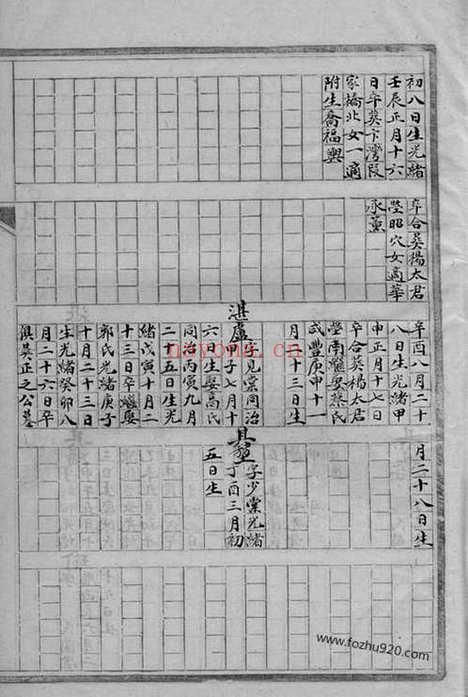 初八日生光緒
壬辰正月十六
日卒葬卞灣段
家橋北女一適
附生喬福興
卒合葬楊太君
塋昭穴女適華
承薰
辛酉八月二十
八日生光緒甲
申正月十七日
卒合葬楊太君
塋南繼娶蔡氏
咸豐庚申十一
月十三日生
湛盧字見棠同治
甲子七月十
六日生娶高氏
同治丙寅九月
二十五日生光
緒戊寅十月二
十三日卒繼娶
郭氏光緒庚子
十月二十三日
生光緒癸卯八
月二十六日卒
俱葬正之公墓
月二十八日生
具瞻字少棠光緒
丁酉三月初
五日生
nayona.cn
www.fozhu920.com